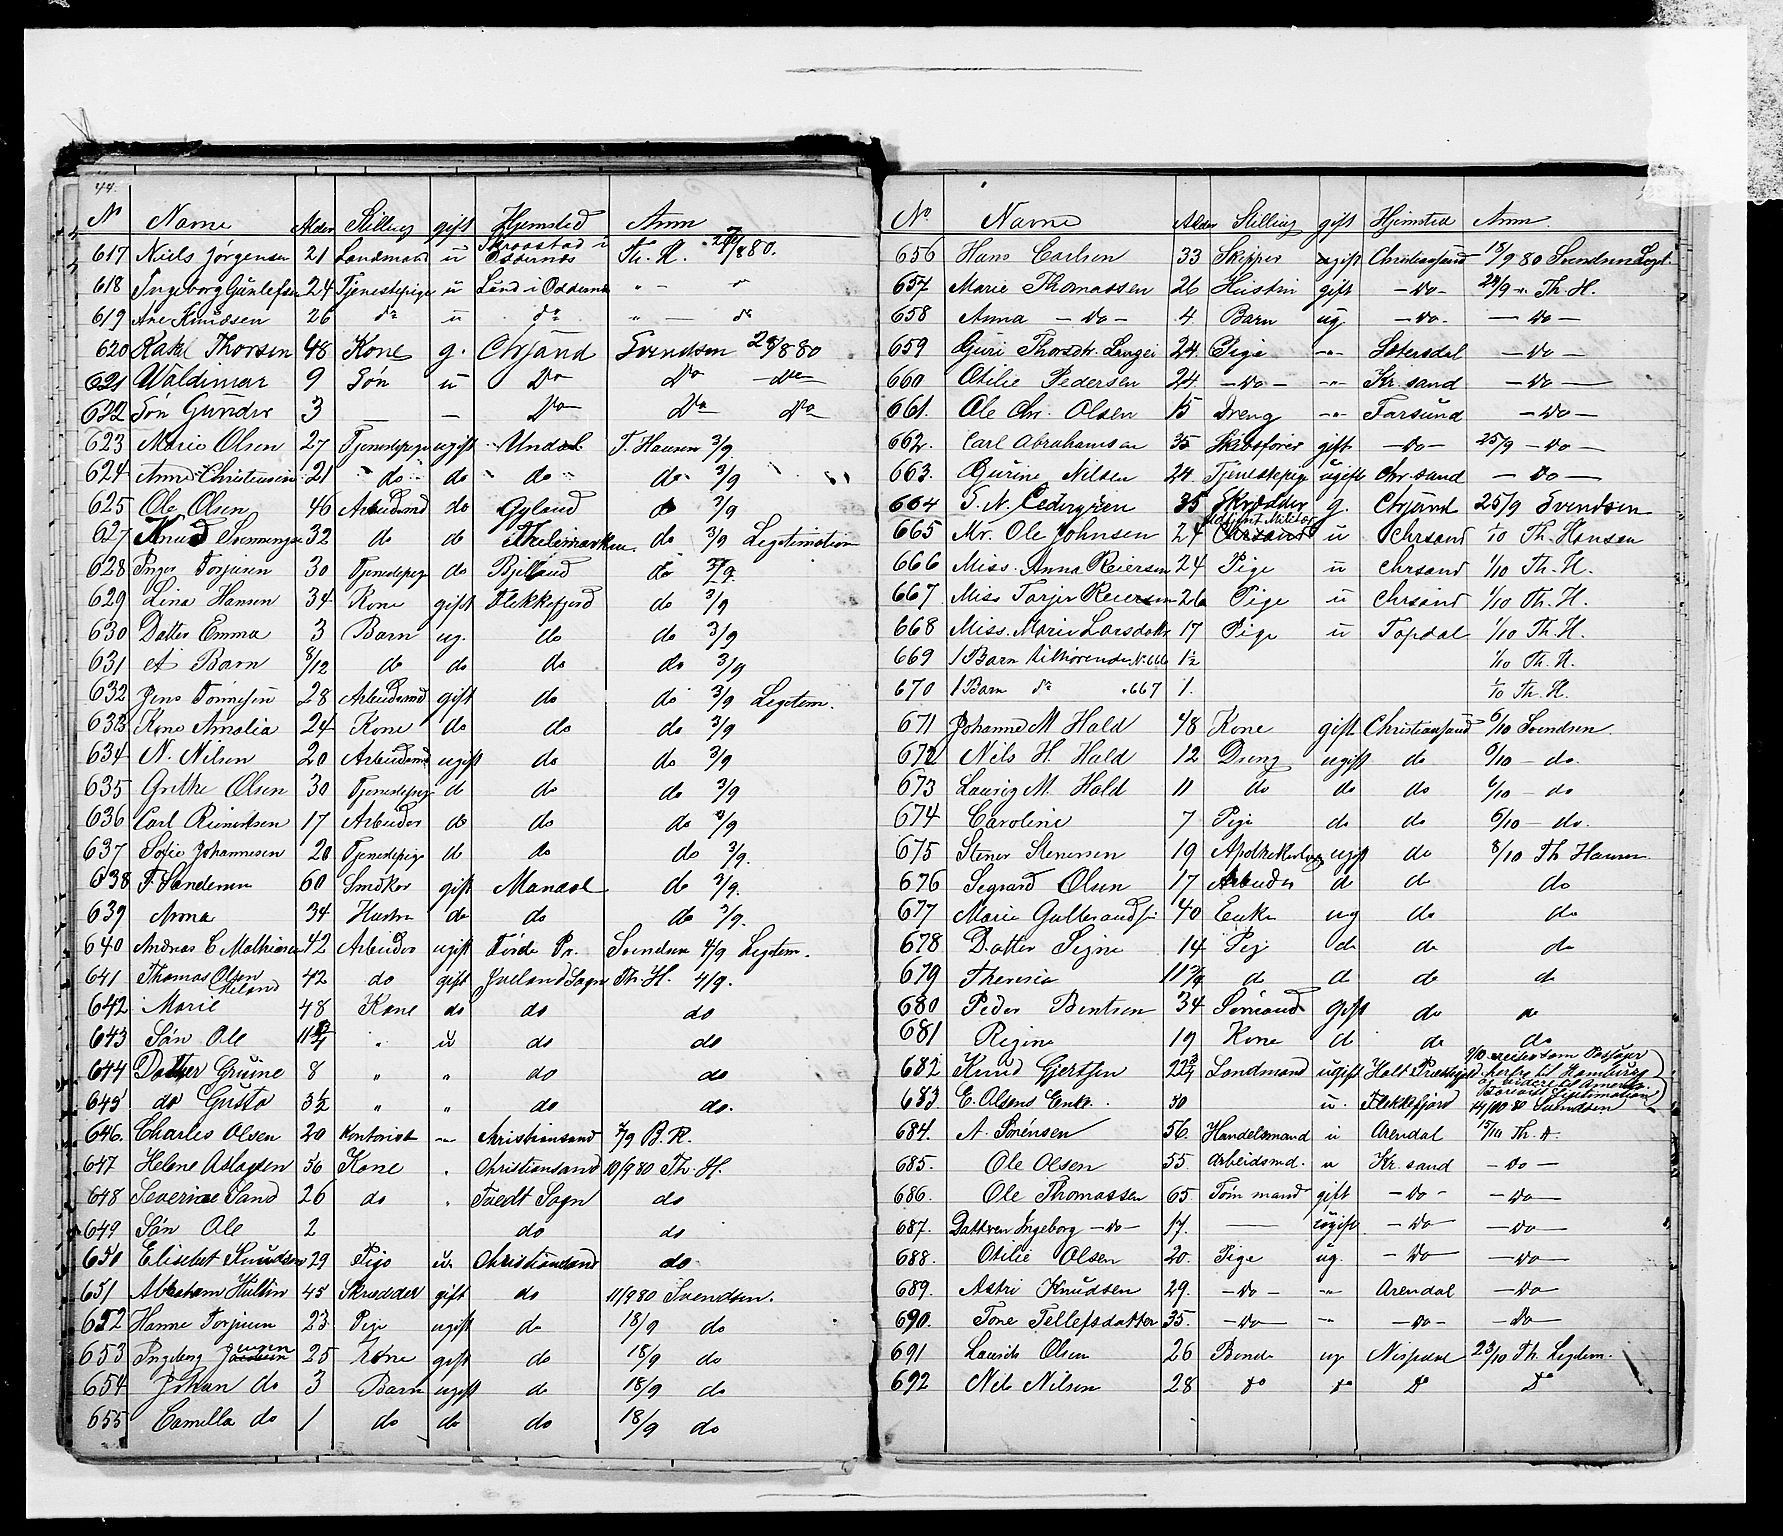 44.
No Navne Alder Stilling gift Hjemsted Anm
617 Niels Jørgensen 21 Landmand u Skraastad i Oddernæs Th. R. 27/8 80.
618 Ingeborg Gunlefsen 24 Tjenestepige u Lund i Oddernæs " - "
619 Ane Knudsen 26 do u do " — do
620 Rakel Thorsen 48 Kone g. Chrsand Svendsen 28/8 80
621 Waldimar 9 Søn u Do Do Do
622 Søn Gunder 3 — Do Do Do
623 Marie Olsen 27 Tjenestepige ugift Undal T. Hansen 3/9
624 Anne Christensen 21 do do do do 3/9
625 Ole Olsen 46 Arbeidsmd do Gyland do 3/9
627 Knud Svenningsen 32 do do Thelemarken do 3/9 Legitimation
628 Inger Torjusen 30 Tjenestepige do Bjelland do 3/9
629 Lina Hansen 34 Kone gift Flekkefjord do 3/9
630 Datter Emma 3 Barn ug. do do 3/9
631 et Barn 8/12 do do do do 3/9
632 Jens Tønnesen 28 Arbeidsmd gift do do 3/9 Legitem.
633 Kone Amalia 24 Kone do do do 3/9
634 N. Nilsen 20 Arbeidsmd ugift do do 3/9
635 Grethe Olsen 30 Tjenestepige do do do 3/9
636 Carl Reinertsen 17 Arbeider do do do 3/9
637 Sofie Johannesen 20 Tjenestepige do do do 3/9.
638 T. Sandersen 60 Smökor gift Mandal do 3/9.
639 Anna 34 Hustru do do do 3/9.
640 Andreas C Mathiasen 42 Arbeider ugift Førde Pr. Svendsen 4/9 Legitem.
641 Thomas Olsen Meland 42 do gift Jveland Sogn Th. H. 4/9.
642 Marie 48 Kone do do do
643 Søn Ole 11 " u do do
644 Datter Gurine 8 " " do do
645 do Gusta 3½ " " do do.
646. Charles Olsen 20 Kontorist — Christiansand 7/9 B. R.
647 Helene Aslagsen 50 Kone . Christiansand 10/9 80 Th. H.
648 Severine Sand 26 do . Tvedt Sogn do
649 Søn Ole 2 do do
650 Elisebet Knudsen 29 Pige u. Christiansand do
651 Abraham Hultin 45 Skrædder gift do 11/9 80 Svendsen.
652 Hanne Torjusen 23 Pige ugift do 18/9 do
653 Ingeborg Jensen 25 Kone gift do 18/9 do
654 Johan do 3 Barn ugift do 18/9 do
655 Camilla do 1 do do do 18/9 do
No Navne Alder Stilling gift Hjemsted Anm.
656 Hans Carlsen 33 Skipper ugift Christiansand 18/9 80 Svendsen Legt.
657 Marie Thomassen 26 Hustru gift — Do — 24/9 " Th. H.
658 Anna — Do — 4. Barn ug. — Do — — Do —
659 Guri Thorsdtr. Langei 24. Pige — " — Sætersdal — Do —
660 Otilie Pedersen 24. — Do — — " — Kr. sand — Do —
661. Ole Chr. Olsen 15 Dreng — " — Farsund — Do —
662. Carl Abrahamsen 35 Skibsfører gift — Do — 25/9 — Do —
663. Gurine Nilsen 24. Tjenestepige ugift Chr. sand — Do —
664 T. N. Cedergren 35 Skrædder g. Chrsand 25/9 Svendsen
665 Mr. Ole Johnsen 24 Militær u Chrsand 1/10 Th. Hansen
666 Miss. Anna Reiersen 24 Pige u Chrsand 1/10 Th. H.
667. Miss Torjer Reiersen 26 Pige u Chrsand 1/10 Th. H.
668 Miss. Marie Larsdatr 17 Pige u Topdal 1/10 Th. H.
669 1 Barn tilhørende No 666 1½ 1/10 Th. H.
670 1 Barn do . 667 1. 1/10 Th. H.
671 Johanne M Hald 48 Kone gift Christiansand 6/10 Svendsen.
672 Nils H. Hald 12 Dreng ugift do 6/10 — do.
673 Lauriz M. Hald 11 do do do 6/10 — do
674 Caroline 7 Pige do do 6/10 — do.
675 Stener Stenersen 19 ugift do 8/10 Th Hansen
676 Segvard Olsen 17 Arbeider do do do
677 Marie Gulbrandsen 40 Enke ug do do
678 Datter Signe 14 Pige do do do
679 Theresia 11 do do do do
680 Peder Bentsen 34 Sømand gift do do
681 Regine 19 Kone do do do
682 Knud Gjertsen 22 Landmand ugift Holt Prestegjeld 9/10 reiser som Passager herfra til Hamburg og videre til Amerika.
683 E. Olsens Enke. 50 u. Flekkefjord Legitimation 14/10 80 Svendsen
684. A. Sørensen 56. Handelsmand u Arendal 15/10 Th. H.
685. Ole Olsen 55 Arbeidsmd. u Kr. sand — Do —
686. Ole Thomassen 65. Tømmand gift — Do — — Do —
687. Dattren Ingeborg — Do — 17. — ugift — Do — — Do —
688. Otilie Olsen 20. Pige ug. — Do — — Do —
689. Astri Knudsen 29. — Do — — " — Arendal — Do —
690. Tone Tellefsdatter 35. — Do — — " — — Do — — Do —
691 Laurits Olsen 26 Bonde ug Nissedal 23/10 Th. Legitem.
692 Nels Nilsen 28 Do Do Do Do